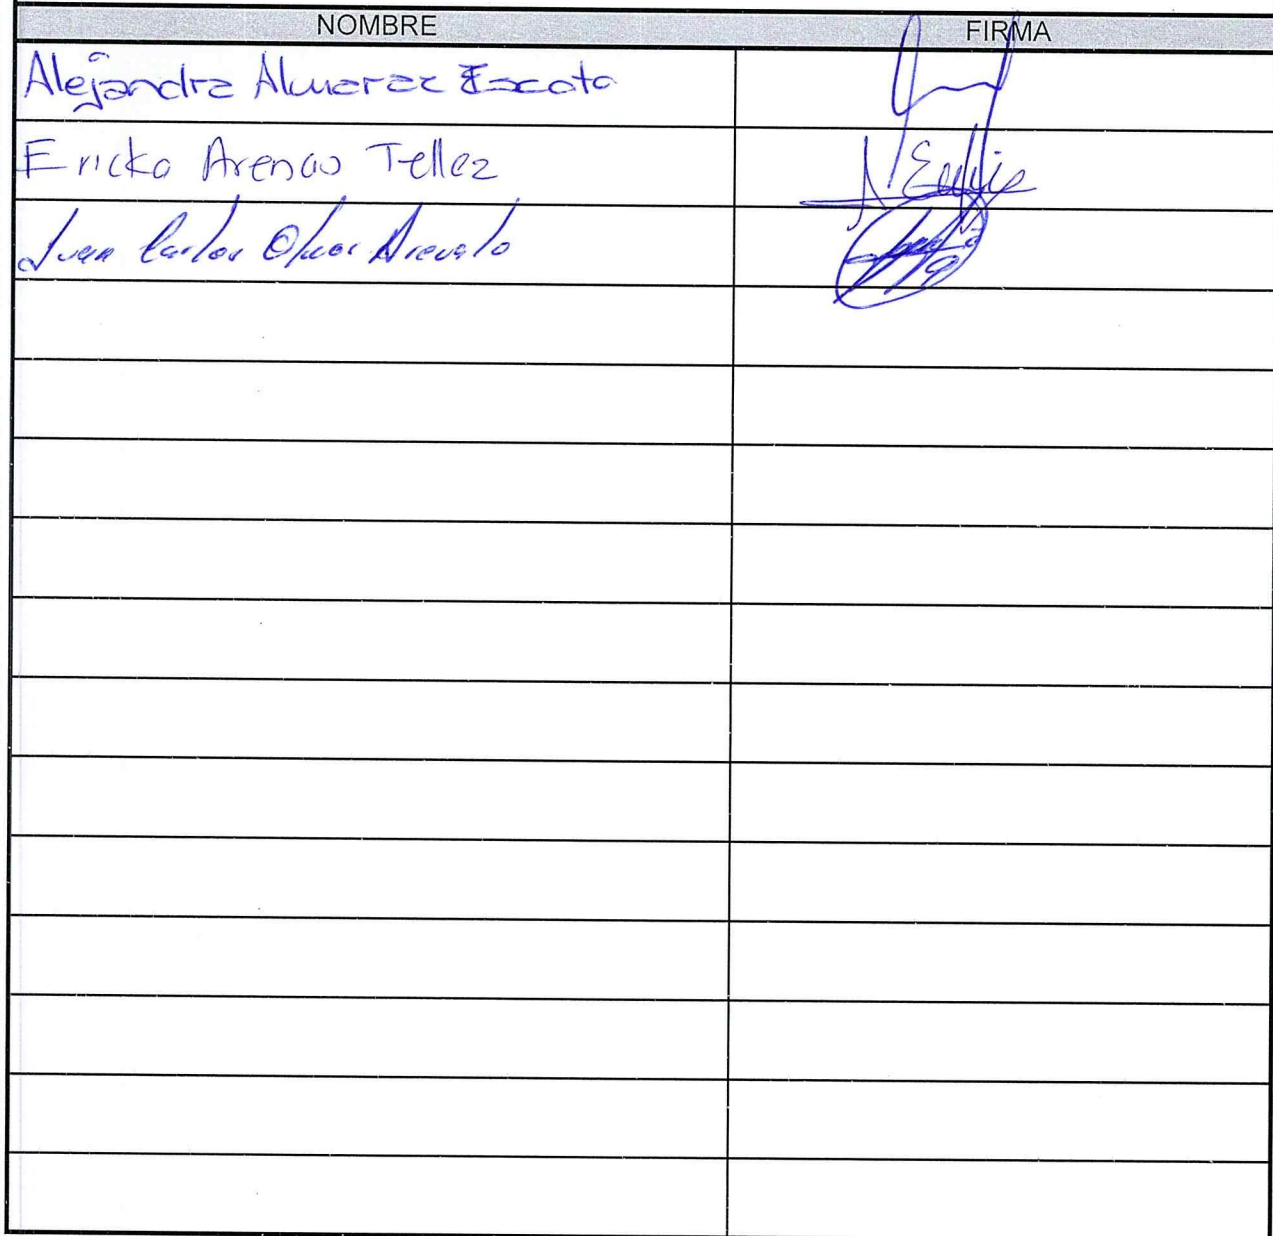 NOMBRE FIRMA
Alejandra Almaraz Escoto
Ericka Arenas Tellez
Juan Carlos Arevalo